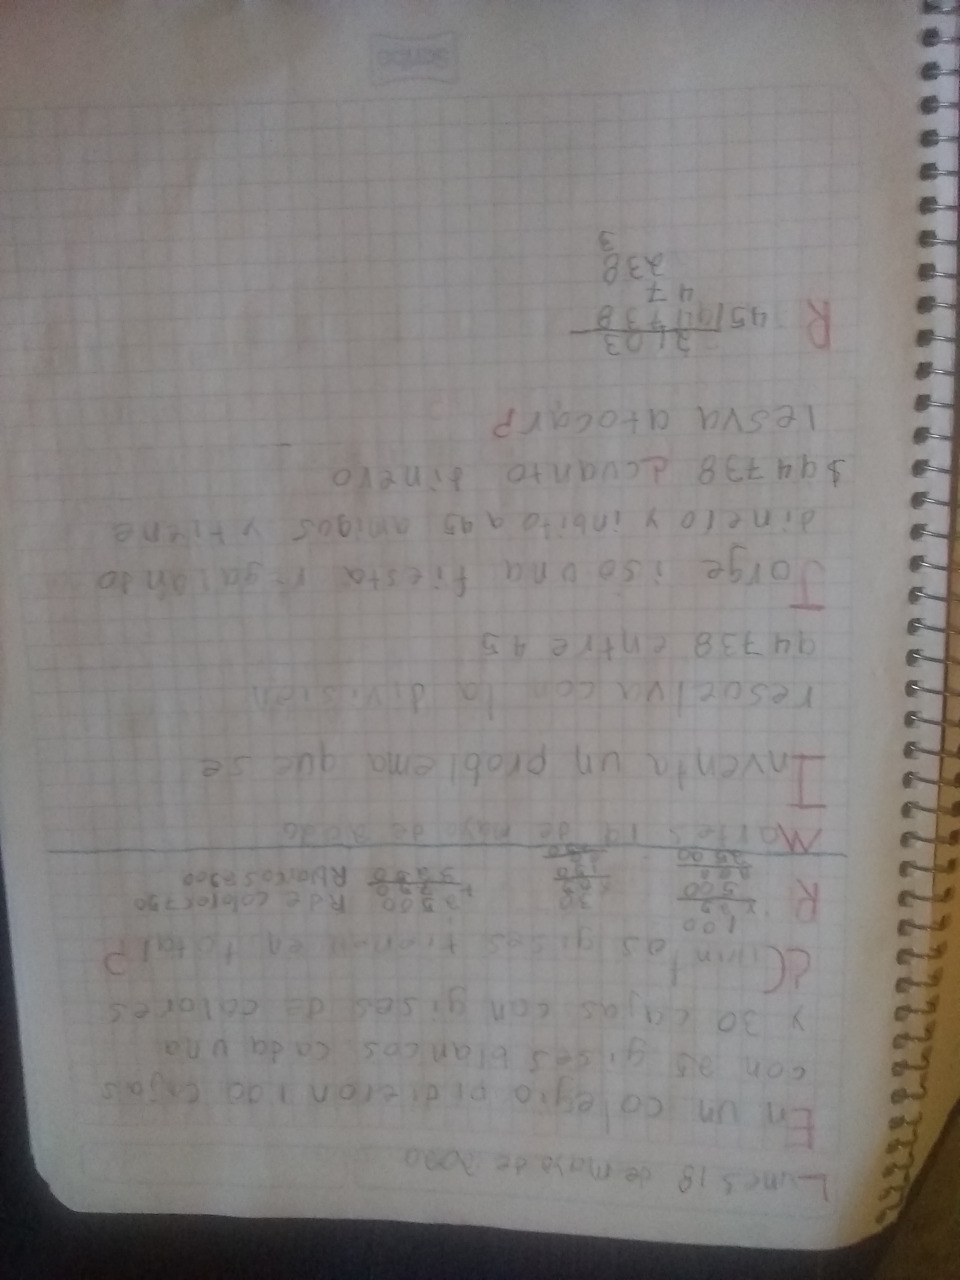 Lunes 18 de mayo de 2020
En un colegio pidieron 100 cajas
con 25 gises blancos cada una
y 30 cajas con gises de colores
¿Cuantas gises tienen en total?
R
100
500
2500
30
150
750
2500
750
3250
R de color 750
R blancos 2500
Martes 19 de mayo de 2020
Inventa un problema que se
resuelva con la división
94738 entre 45
Jorge iso una fiesta regalando
dinero y inbito a 45 amigos y tiene
$94738 ¿cuanto dinero
les va a tocar?
R
2103
45 94738
47
238
3
Scribe